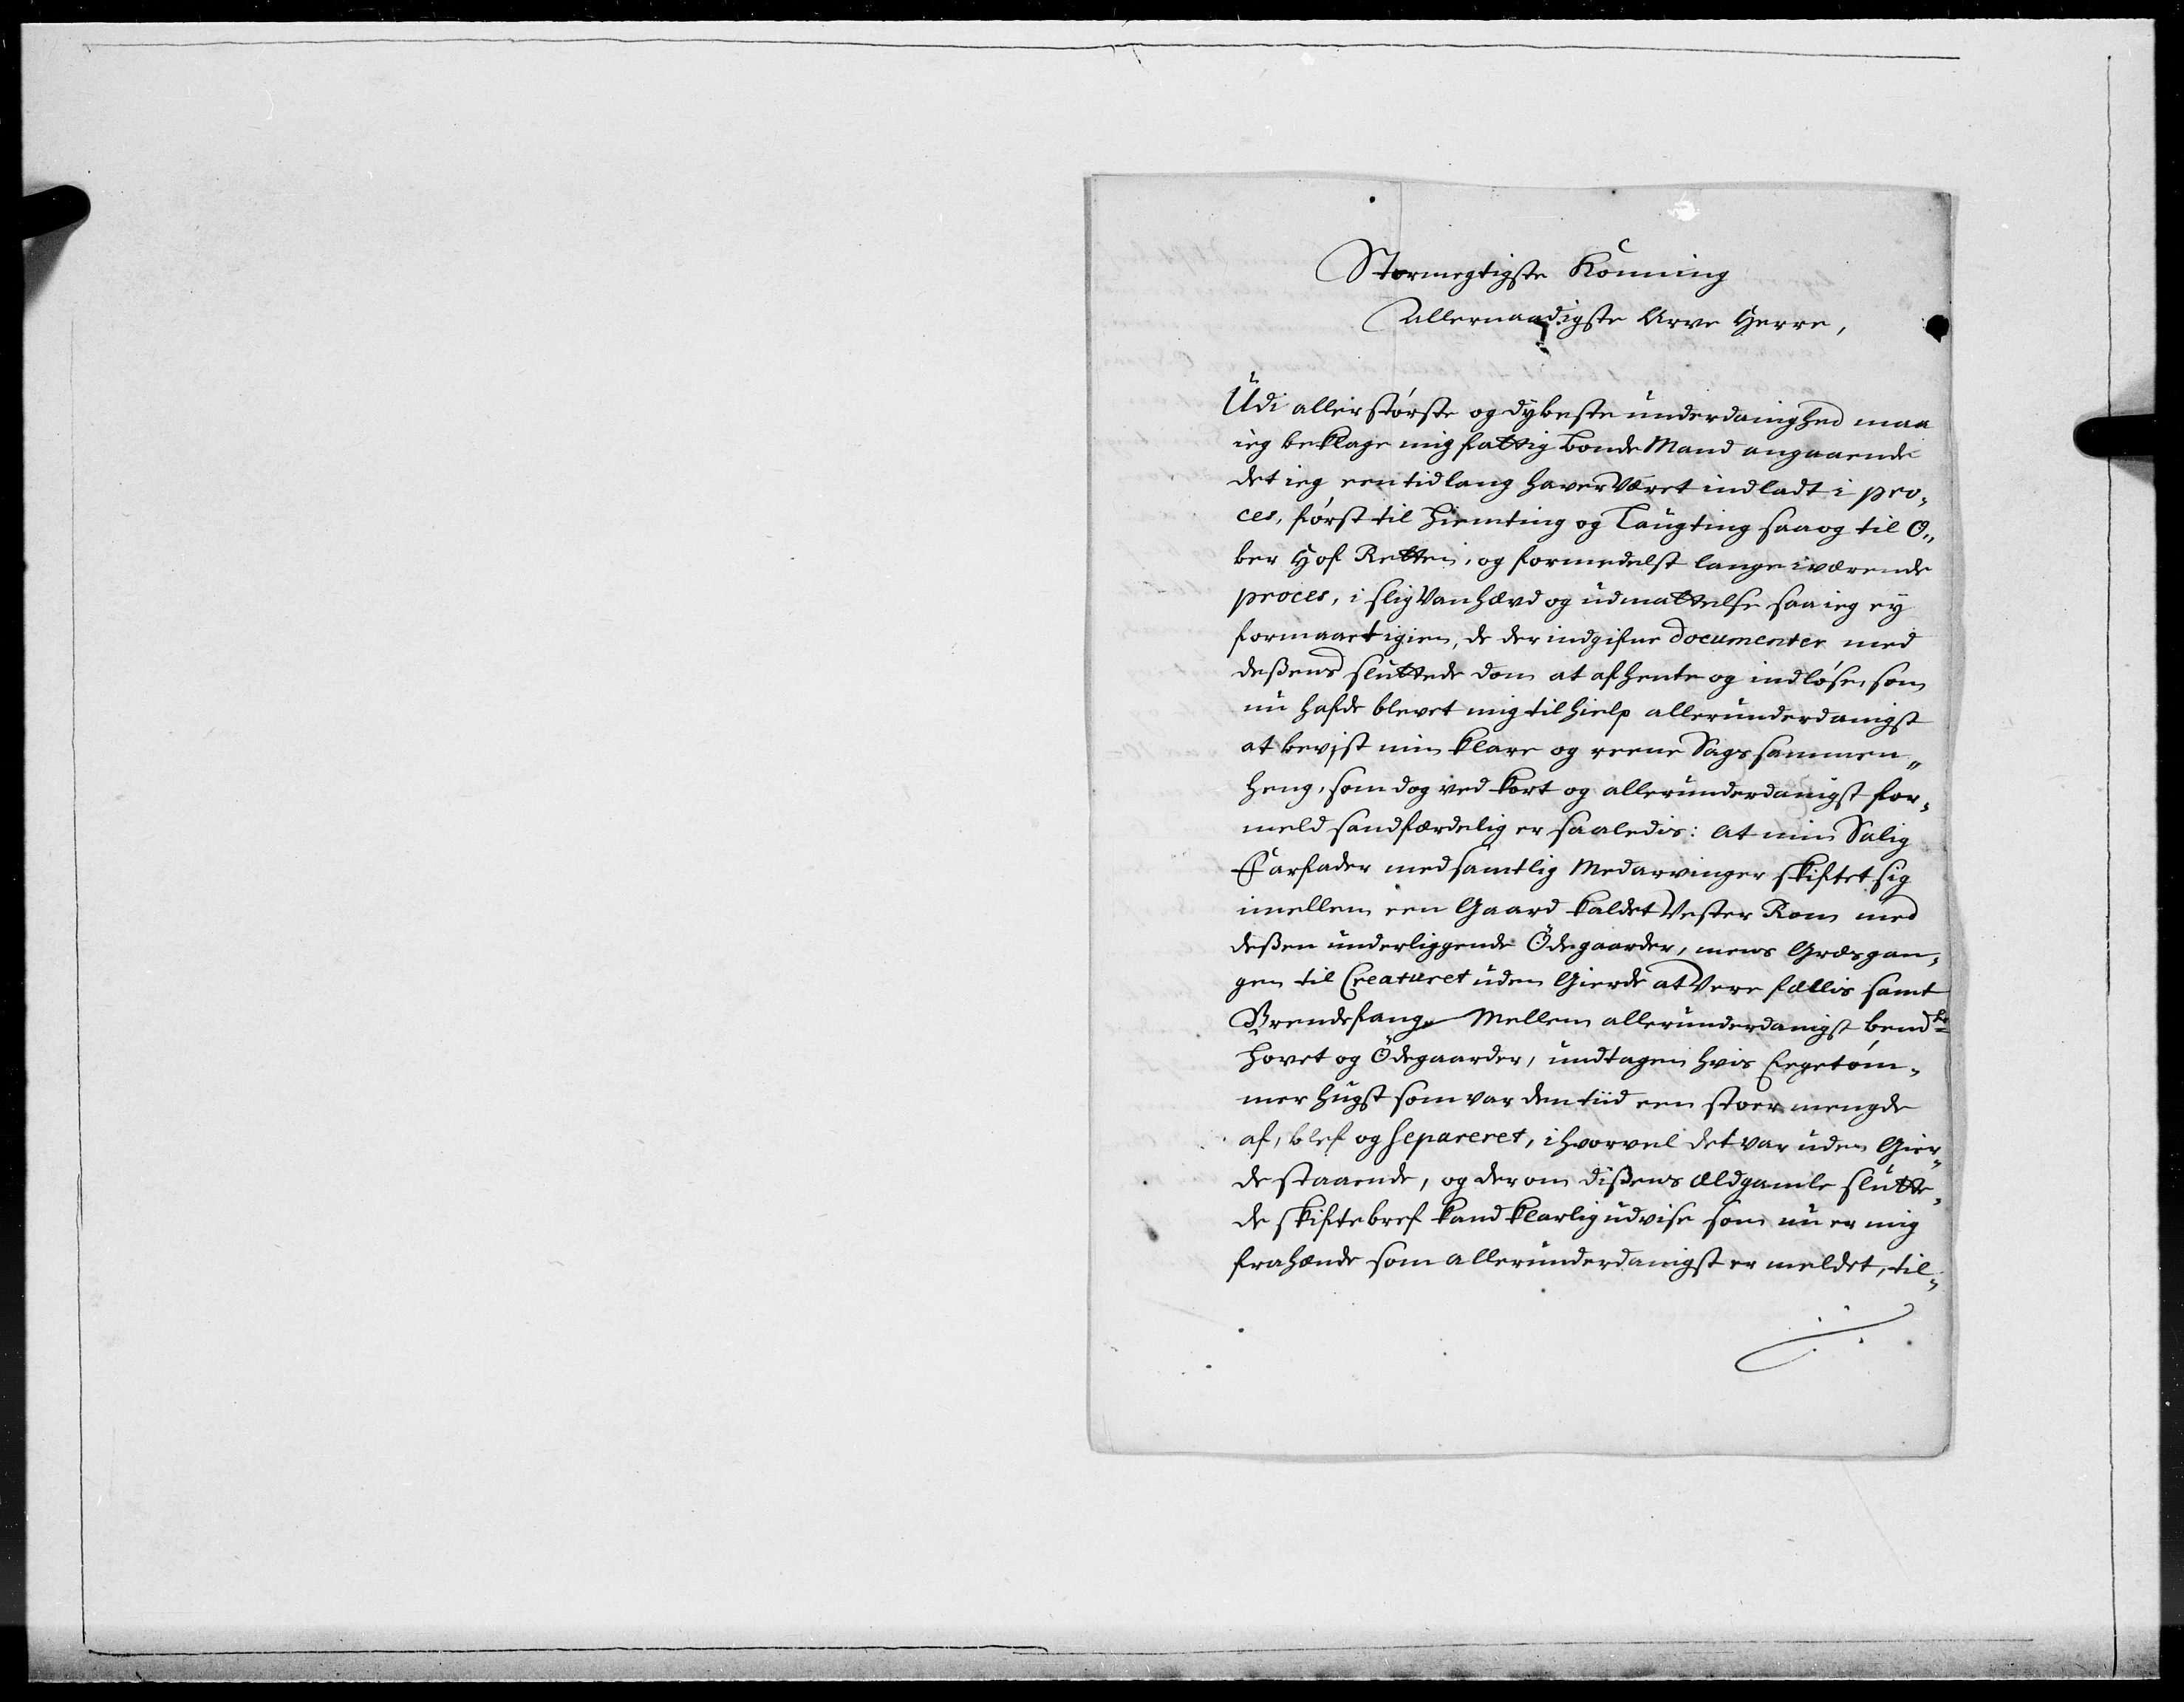 Stormegtigste Konning
Allernaadigste Arve Herre,
Udi allerstørste og dybeste underdanighed maa
ieg beklage mig fattig bonde Mand angaaende
det ieg een tidlang haver Været indladt i pro¬
ces, først til Hiemting og Laugting saa og til O¬
ber Hof Retten, og formedelst lange i værende
proces, i slig Vanhævd og udmattelse saa ieg ey
formaaet igien, de der indgifne documenter med
dessens sluttede dom at afhente og indløse, som
nu hafde blevet mig til hielp allerunderdanigst
at bevist min klare og reene Sags sammen¬
heng, som dog ved kort og allerunderdanigst for¬
meld sandfærdelig er saaledis: At min Salig
Farfader med samtlig Medarvinger skiftet sig
imellem een Gaard kaldet Vester Rom med
dessen underliggende Ødegaarder, mens Græsgan¬
gen til Creaturet uden Gierde at Vere fællis samt
Brendefange Mellem allerunderdanigst bemdte
Hovet og Ødegaarder, undtagen hvis Eegetøm¬
mer hugst som var den tiid een stoer mengde
af, blef og separeret, ihvorvel det var uden Gier¬
de staaende, og der om dissens ældgamle slutte¬
de skiftebref kand klarlig udvise som nu er mig
frahænde som allerunderdanigst er meldet, til¬